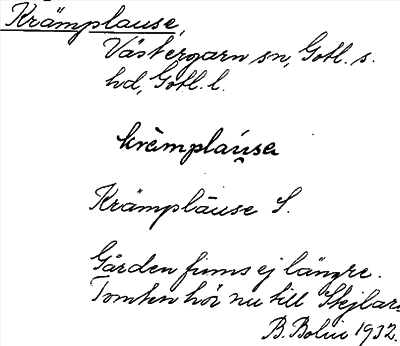 Krämplause,
Västergarn sn, Gotl. s.
hd, Gotl. l.
krämplau̯sa
Krämplause S.
Gården finns ej längre.
Tomten hör nu till Skejlars.
B. Bolin 1932.